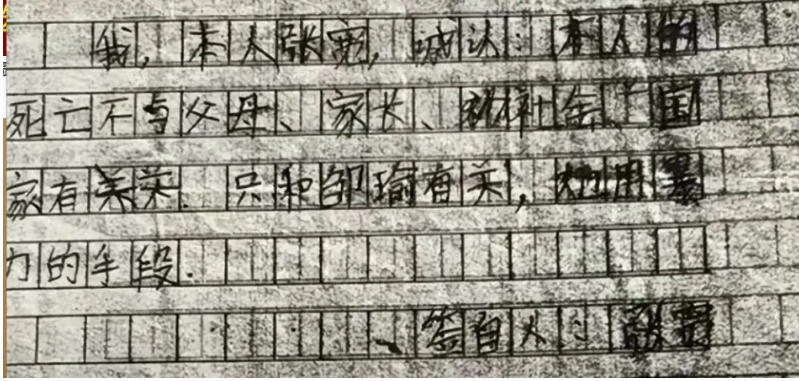 我,本人张宽,诚认:本人的
死亡不与父母、家长、社会、国
家有关系.只和邹瑜有关,她用暴
力的手段.
签自人:张宽